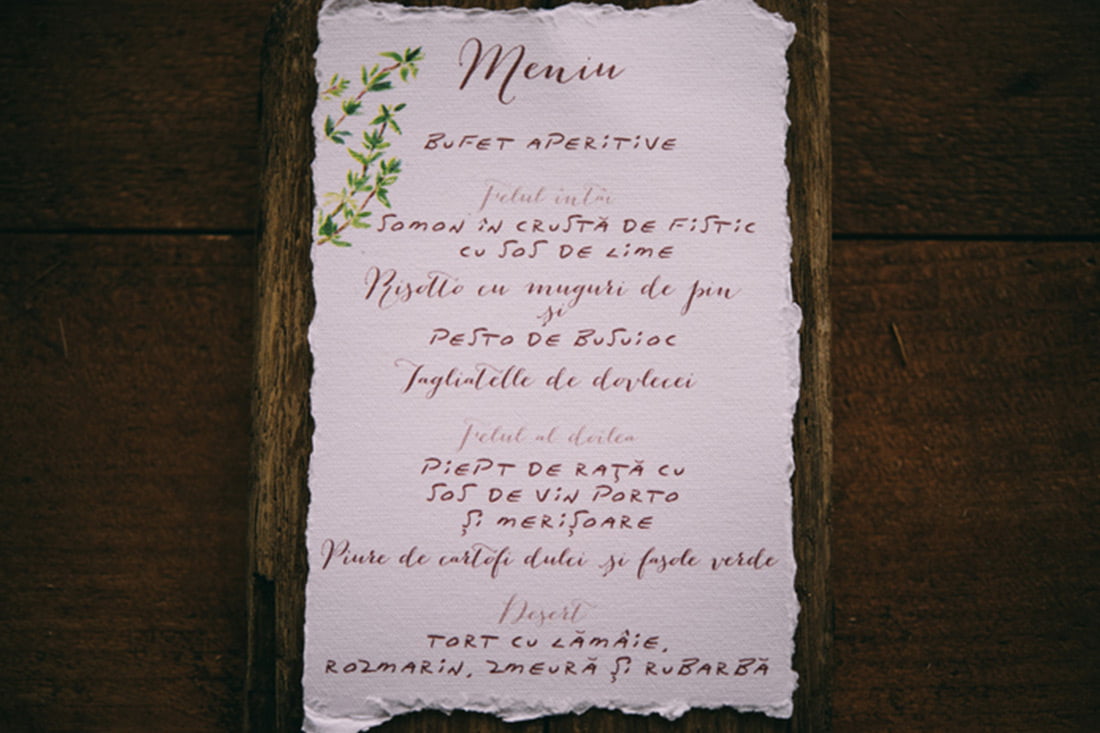 Meniu
BUFET APERITIVE
Felul întâi
SOMON ÎN CRUSTĂ DE FISTIC
CU SOS DE LIME
Risotto cu muguri de pin
și
PESTO DE BUSUIOC
Tagliatelle de dovlecei
Felul al doilea
PIEPT DE RAȚĂ CU
SOS DE VIN PORTO
ȘI MERIȘOARE
Piure de cartofi dulci și fasole verde
Desert
TORT CU LĂMÂIE,
ROZMARIN, ZMEURĂ ȘI RUBARBĂ